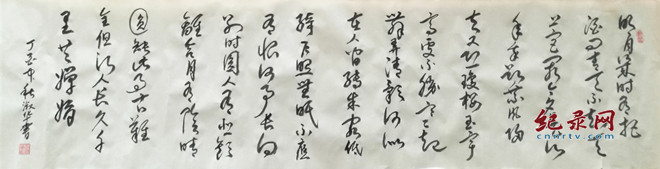 明月几时有把
酒问青天不知天
上宫阙今夕是何
年我欲乘风归
去又恐琼楼玉宇
高处不胜寒起
舞弄清影何似
在人间转朱阁低
绮户照无眠不应
有恨何事长向
别时圆人有悲欢
离合月有阴晴
圆缺此事古难
全但愿人长久千
里共婵娟
丁酉年秋
纪录网